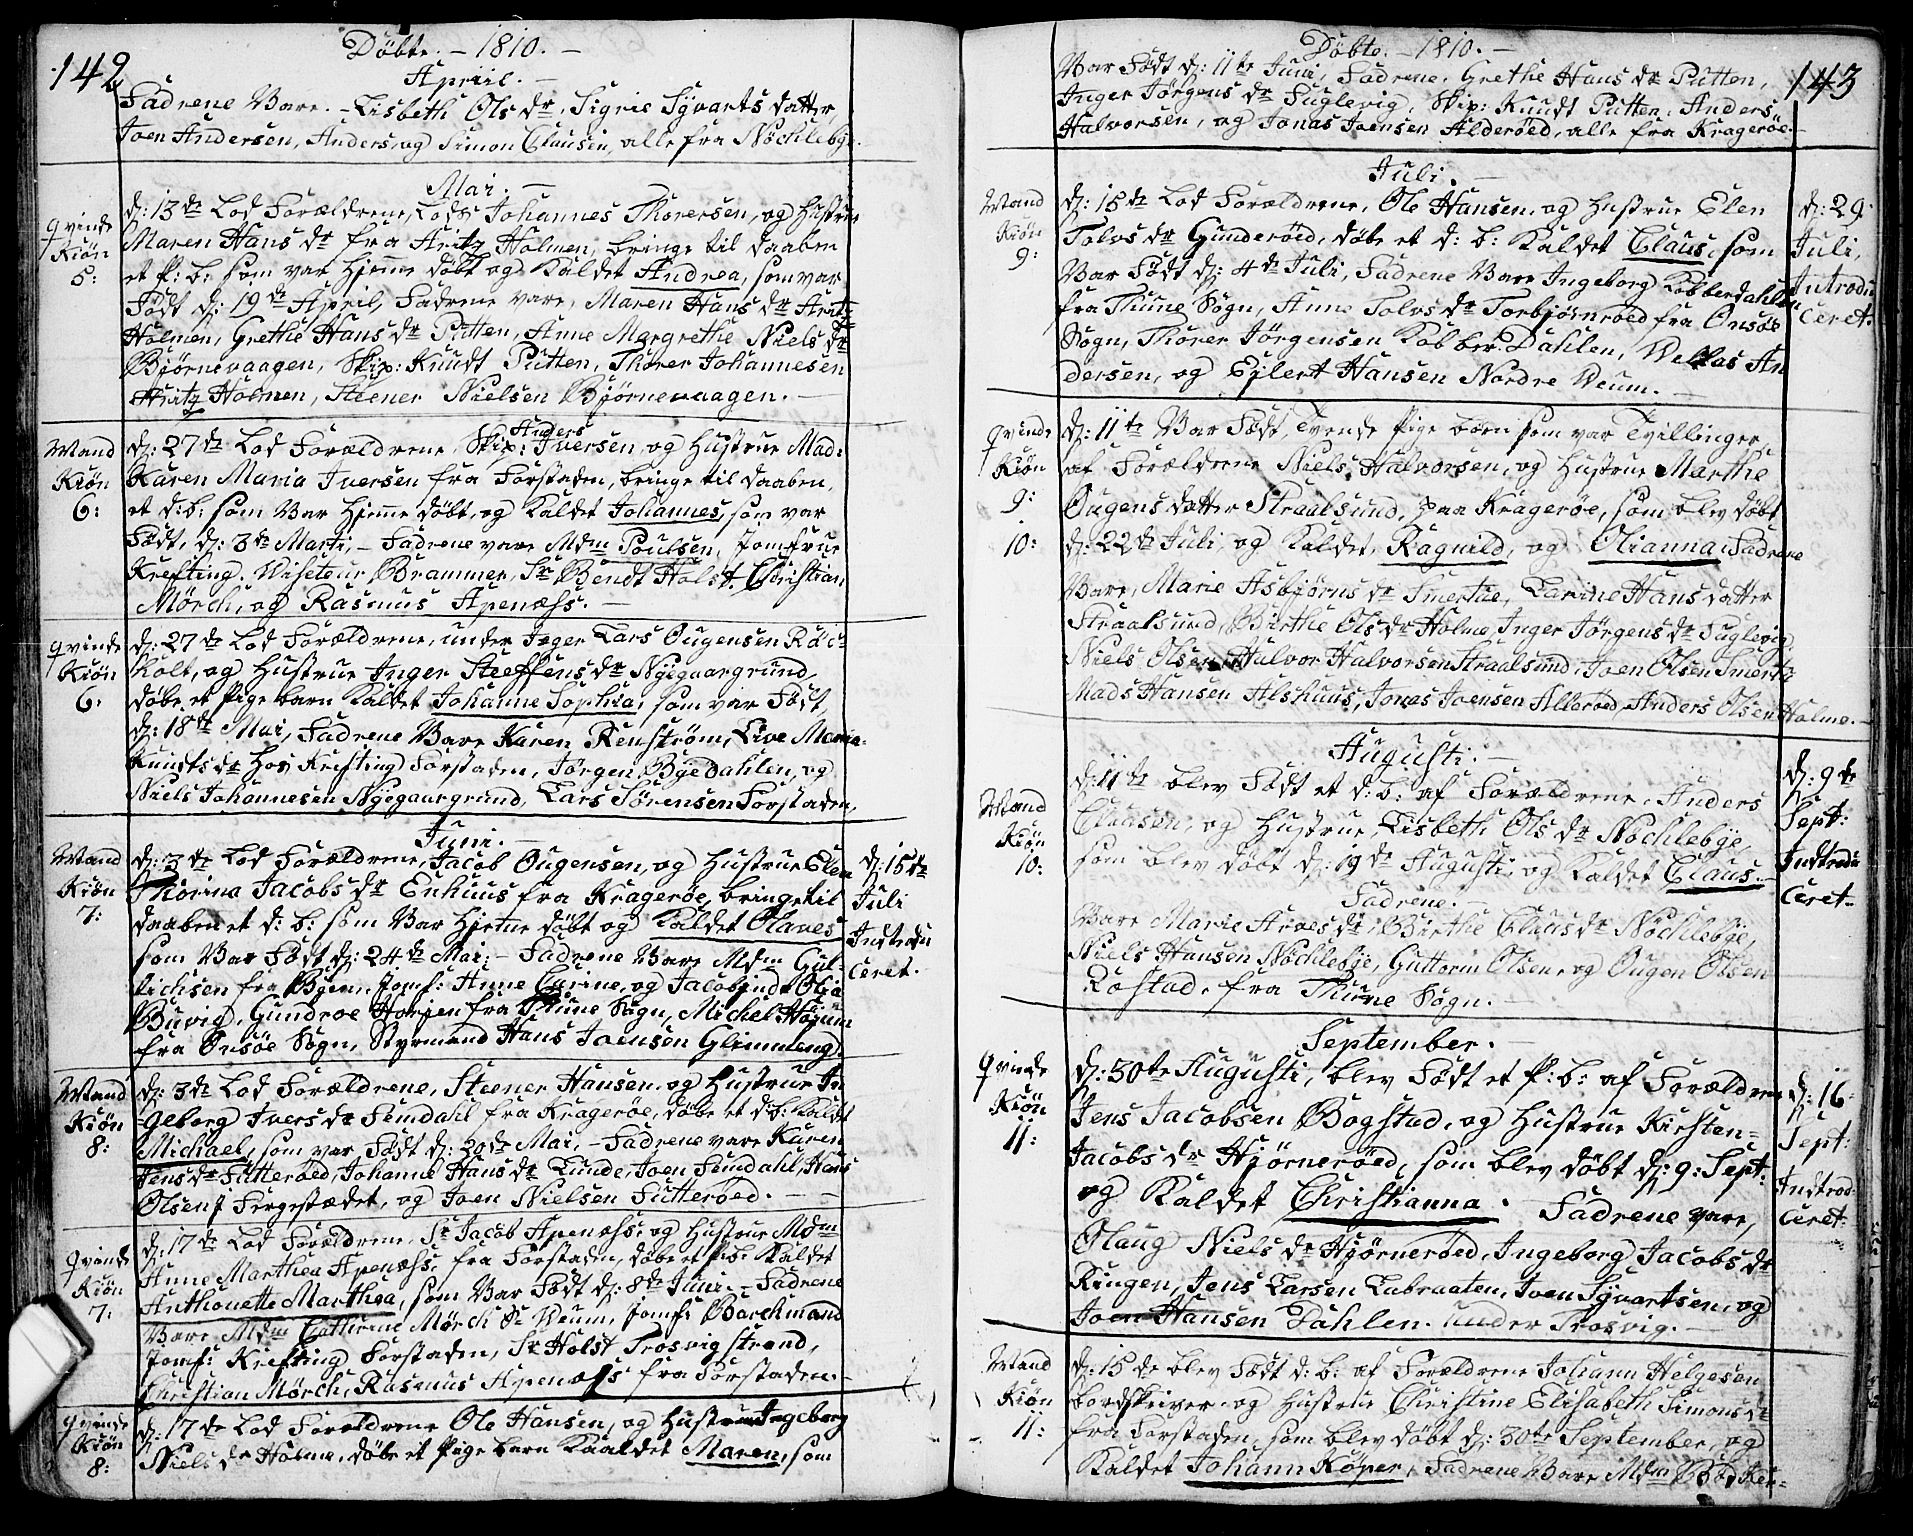 142
Döbte. – 1810. –
Apriil. –
Fadrene Vare. – Lisbeth Ols dr, Sigris Sÿvarts datter,
Joen Andersen, Anders, og Simon Clausen, alle fra Nöchlebÿe.
Mai. –
Qvinde
Kiön
5:
d: 13de Lod Forældrene, Lods Johannes Thorersen, og Hustrue
Maren Hans dr fra Aritz Holmen, bringe til daaben
et P: b: som var hjeme döbt og Kaldet Andrea, som var
Födt d: 19de April, Fadrene vare, Maren Hans dr Aritz
Holmen, Grethe Hans dr Putten, Anne Margrethe Niels dr
Bjørnevaagen, Skip: Knudt Putten, Thorer Johannesen
Aritz Holmen, Steener Nielsen Bjørnevaagen. –
Mand
Kiön
6:
Anders
d: 27de Lod Forældrene, Skip: Iversen, og Hustrue Mad:
Karen Maria Iversen fra Forstaden, bringe til daaben,
et d: b: som Var Hjeme döbt, og Kaldet Johannes, som var
Födt, d: 3de Marti, – Fadrene vare Mdm Poulsen, Jomfrue
Krefting, Viseteur Brammer, Sr Bendt Holst, Christian
Mörch, og Rasmus Apenæss. –
Qvinde
Kiön
6:
d: 27de Lod Forældrene, under Jeger Lars Ougensen Röc-
holt, og Hustrue Inger Steeffens dr Nÿegaargrund,
döbe et Pige barn Kaldet Johanne Sophia, som var Födt,
d: 18de Mai, Fadrene Vare Karen Renström, Live Maria
Knudts dr Hos Krefting Forstaden, Jörgen Bÿedahlen, og
Niels Johannesen Nÿegaargrund, Lars Sörensen Forstaden.
Juni. –
Mand
Kiön
7:
d: 3de Lod Forældrene, Jacob Ougensen, og Hustrue Elen
Thorina Jacobs dr Enhuus fra Krageröe, bringe til
daaben et d: b: som Var Hjeme döbt og Kaldet Olaves
som Var Födt d: 24de Mai; – Fadrene Vare Mdm Gul-
lichsen fra Bÿen, Jomf: Anne Carine, og Jacobine Olia
Buvig, Gundroe Horjen fra Thune Sogn, Michel Højum
fra Onsöe Sogn, Styrmand Hans Joensen Glemmeng.
d: 15de
Juli
Indtrodu
Ceret.
Mand
Kiön
8:
d: 3de Lod Forældrene, Steener Hansen, og Hustrue In
geborg Ivers dr Femdahl fra Krageröe, döbe et d: b: Kaldet
Michael, som var Födt d: 20de Mai, – Fadrene vare Karen
Jens dr Futteröed, Johanne Hans dr Lunde, Joen Femdahl, Hans
Olsen Fergestædet, og Joen Nielsen Futteröed. – –
Qvinde
Kiön
7:
d: 17de Lod Forældrene, Sr Jacob Apenæss, og Hustrue Mdm
Anne Marthea Apenæss, fra Forstaden, döbe et P: b: Kaldet
Anthonette Marthea, som Var Födt d: 8de Juni. – Fadrene
Vare Mdm Cathrine Mörch Sr Veum, Jomf: Borchmand
Jomf: Krefting Forstaden, Sr Holst Trosvig strand,
Christian Mörch, Rasmus Apenæss fra Forstaden. –
Qvinde
Kiön
8:
d: 17de Lod Forældrene Ole Hansen, og Hustrue Ingeborg
Niels dr Holme, döbe et Pige barn Kaaldet Maren, som
143
Döbte. – 1810. –
Var Födt d: 11te Juni, Fadrene, Grethe Hans dr Putten,
Inger Jörgens dr Fuglevig, Skip: Knudt Putten, Anders
Halvorsen, og Jonas Joensen Alderöed, alle fra Krageröe. –
Juli. –
Mand
Kiön
9:
d: 15de Lod Forældrene, Ole Hansen, og Hustrue Elen
Tolvs dr Gunderöed, döbe et d: b: Kaldet Claus, som
Var Födt d: 4de Juli, Fadrene Vare Ingeborg Kobberdahlen
fra Thune Sogn, Anne Tolvs dr Torbjörnröed fra Onsöe
Sogn, Thorer Jörgensen Kobber Dahlen, Vellas An
dersen, og Ejlert Hansen Nordre Veum. –
d: 29
Juli,
Introdu
Ceret.
Qvinde
Kiön
9:
10:
d: 11te Var Födt, Tvende Pige börn som var Tvillinger,
af Forældrene Niels Halvorsen, og Hustrue Marthe
Ougens datter Straalsund, paa Krageröe, som blev döbt
d: 22de Juli, og Kaldet, Ragnild, og Olianna, Fadrene
Vare, Marie Asbjørns dr Smertue, Carine Hans datter
Straalsund, Birthe Ols dr Holme, Inger Jörgens dr Fuglevig
Niels Olsen, Halvor Halvorsen Straalsund, Joen Olsen Smertu
Mads Hansen Alshuus, Jonas Joensen Alleröed, Anders Olsen Holme. –
Augusti. –
Mand
Kiön
10:
d: 11te blev Födt et d: b: af Forældrene, Anders
Clausen, og Hustrue, Lisbeth Ols dr Nöchlebÿe,
som blev döbt d: 19de Augusti, og Kaldet Claus. –
Fadrene. –
Vare Marie Arves dr, Birthe Claus dr Nöchlebÿe,
Niels Hansen Nöchlebÿe, Guttorm Olsen, og Ougen Olsen
Rostad, fra Thune Sogn. –
d: 9de
Sept:
Indtrodu
Ceret.
September.
Qvinde
Kiön
11:
d: 30te Augusti, blev Födt et P: b: af Forældrene
Jens Jacobsen Bogstad, og Hustrue Kirsten
Jacobs dr Hjörneröed, som blev döbt d: 9: Sept:
og Kaldet Christianna. Fadrene vare,
Olaug Niels dr Hjörneröed, Ingeborg Jacobs dr
Ringen, Jens Larsen Labraaten, Joen Sÿvartsen, og
Joen Hansen Dahlen, under Trosvig. –
d: 16
Sept:
Indtrod-
Ceret.
Mand
Kiön
11:
d: 15de blev Födt d: b: af Forældrene Johann Helgesen
bordskriver og Hustrue Christine Elisabeth Simons dr
fra Forstaden, som blev döbt d: 30te September, og
Kaldet Johann Köper, Fadrene Vare Mdm Bödker-